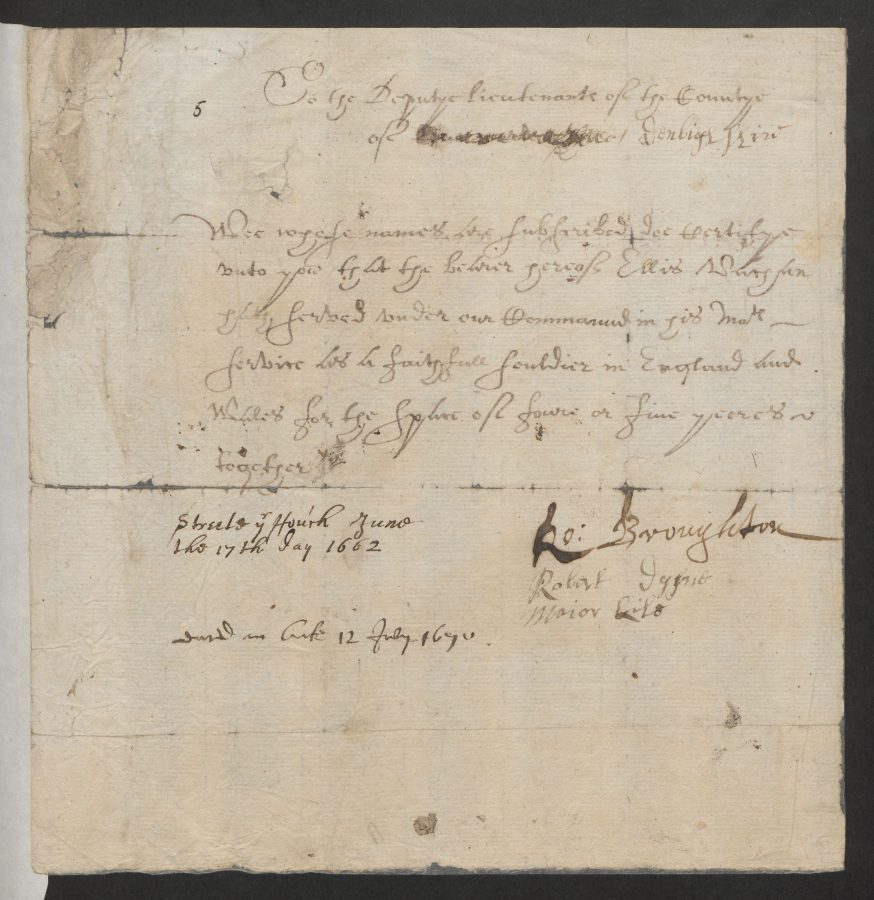 5
To the Deputye Lieutenants of the Countye
of Denbighshire
Wee whose names are subscribed doe Certifye
unto you that the bearer hereof Ellis
hath served under our Command in his Matis
service as a faithfull souldier in England and
Wales for the space of foure or five yeeres
together
June
the 17th day 1662
Ro: Broughton
Robert
Maior
12 July 1670